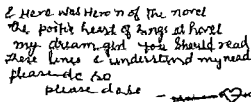 & Here was Hero'n of the novel
the poetic heart of kings at hovel
my dream girl you should read
these lines & understand my need
please do so
please do so